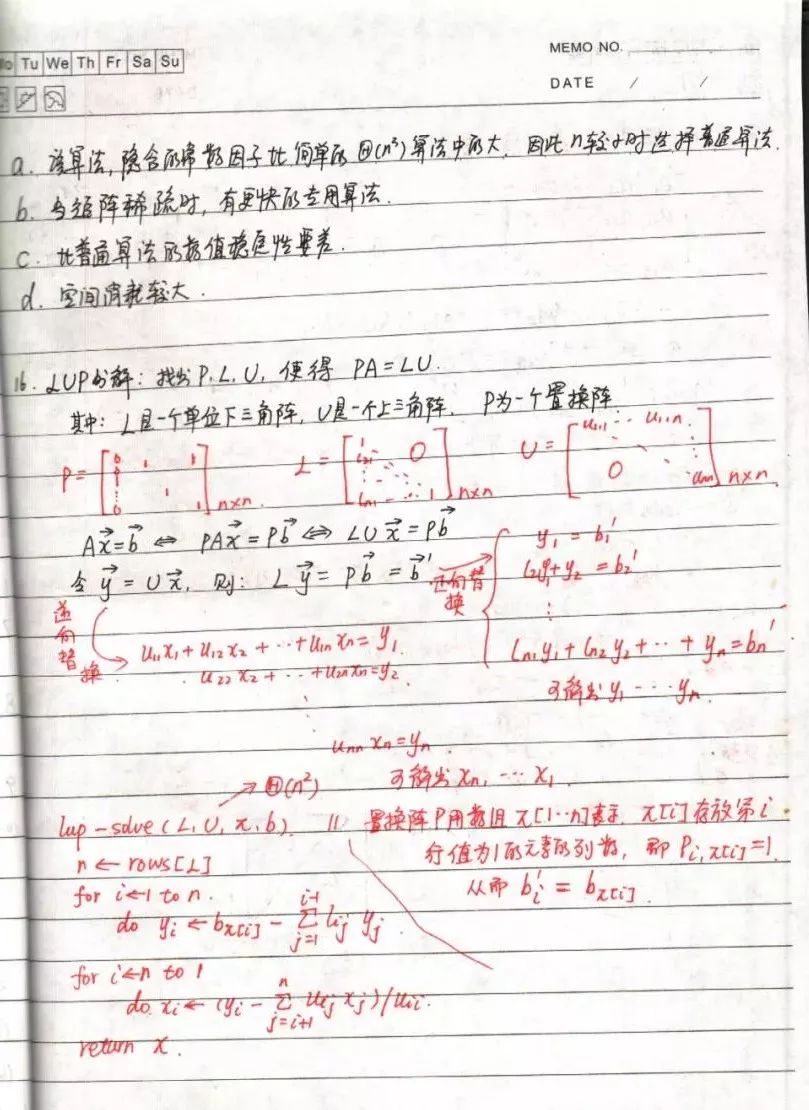 MEMO NO.
Mo Tu We Th Fr Sa Su
DATE / /
a. 该算法,隐含的常数因子比简单的 Θ(n³) 算法中的大, 因此 n 较小时选择普通算法.
b. 当矩阵稀疏时, 有更快的专用算法.
c. 比普通算法的数值稳定性要差.
d. 空间消耗较大.
16. LUP分解: 找出 P, L, U, 使得 PA = LU.
其中: L是一个单位下三角阵, U是一个上三角阵, P为一个置换阵
P = [0 1 1 0 1 ⋮ 0 1] n×n. L = [1 l21 0 ln1 ⋯ 1] n×n U = [u11 ⋯ u1n 0 unn] n×n.
Ax⃗=b⃗ ⇔ PAx⃗=Pb⃗ ⇔ LUx⃗=Pb⃗
令 y⃗ = Ux⃗, 则: Ly⃗ = Pb⃗ = b⃗'
替换
y₁ = b₁'
l₂₁y₁+y₂ = b₂'
⋮
ln1 y₁ + ln2 y₂ + ⋯ + yn = bn'
可解出 y₁ ⋯ yn.
逆向替换
u₁₁x₁ + u₁₂x₂ + ⋯ + u₁n xn = y₁
u₂₂x₂ + ⋯ + u₂n xn = y₂
⋮
unn xn = yn.
可解出 xn, ⋯ x₁.
→ Θ(n²)
lup-solve (L, U, π, b) // 置换阵P用数组 π[1⋯n]表示, π[i]存放第i
行值为1的元素的列数, 即 Pi,π[i] = 1.
从而 bi' = bπ[i]
n ← rows[L]
for i←1 to n
do yi ← bπ[i] − Σ(j=1, i-1) lij yj
for i←n to 1
do xi ← (yi − Σ(j=i+1, n) uij xj)/uii.
return x.